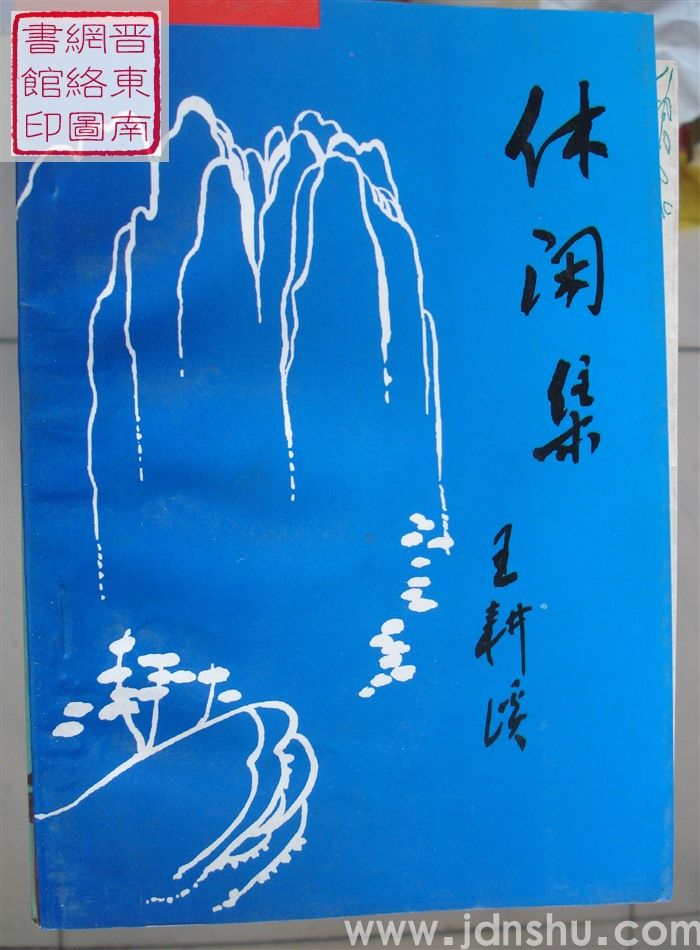 晋東南
網絡圖
書館印
休闲集
王耕溪
www.jdnshu.com